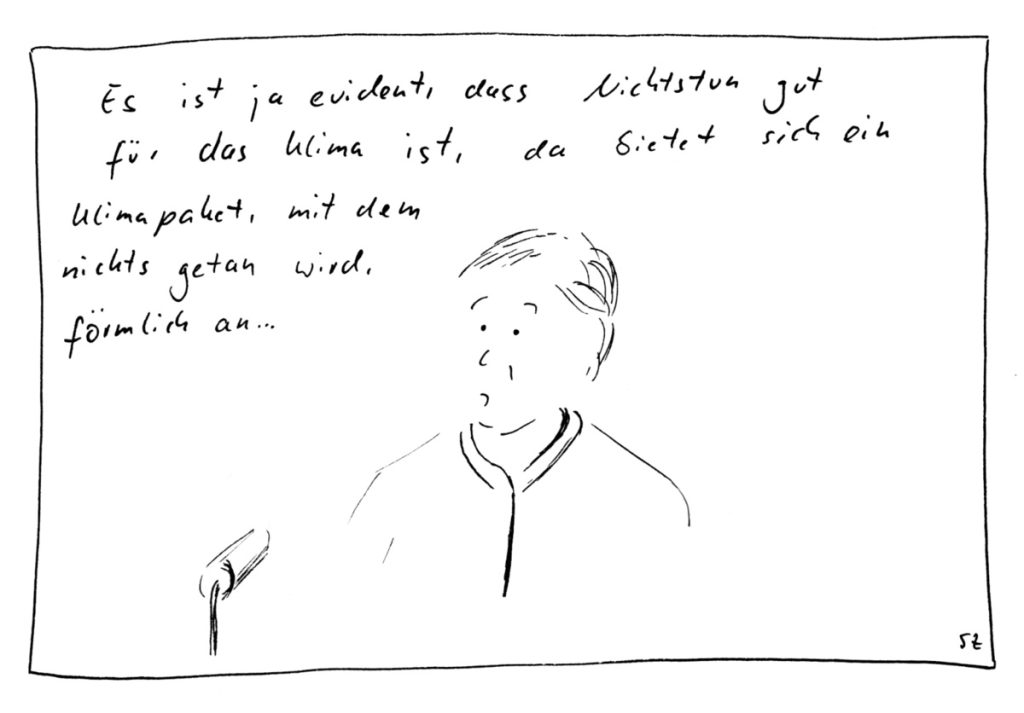 Es ist ja evident, dass Nichtstun gut
für das Klima ist, da bietet sich ein
Klimapaket, mit dem
nichts getan wird,
förmlich an...
SZ